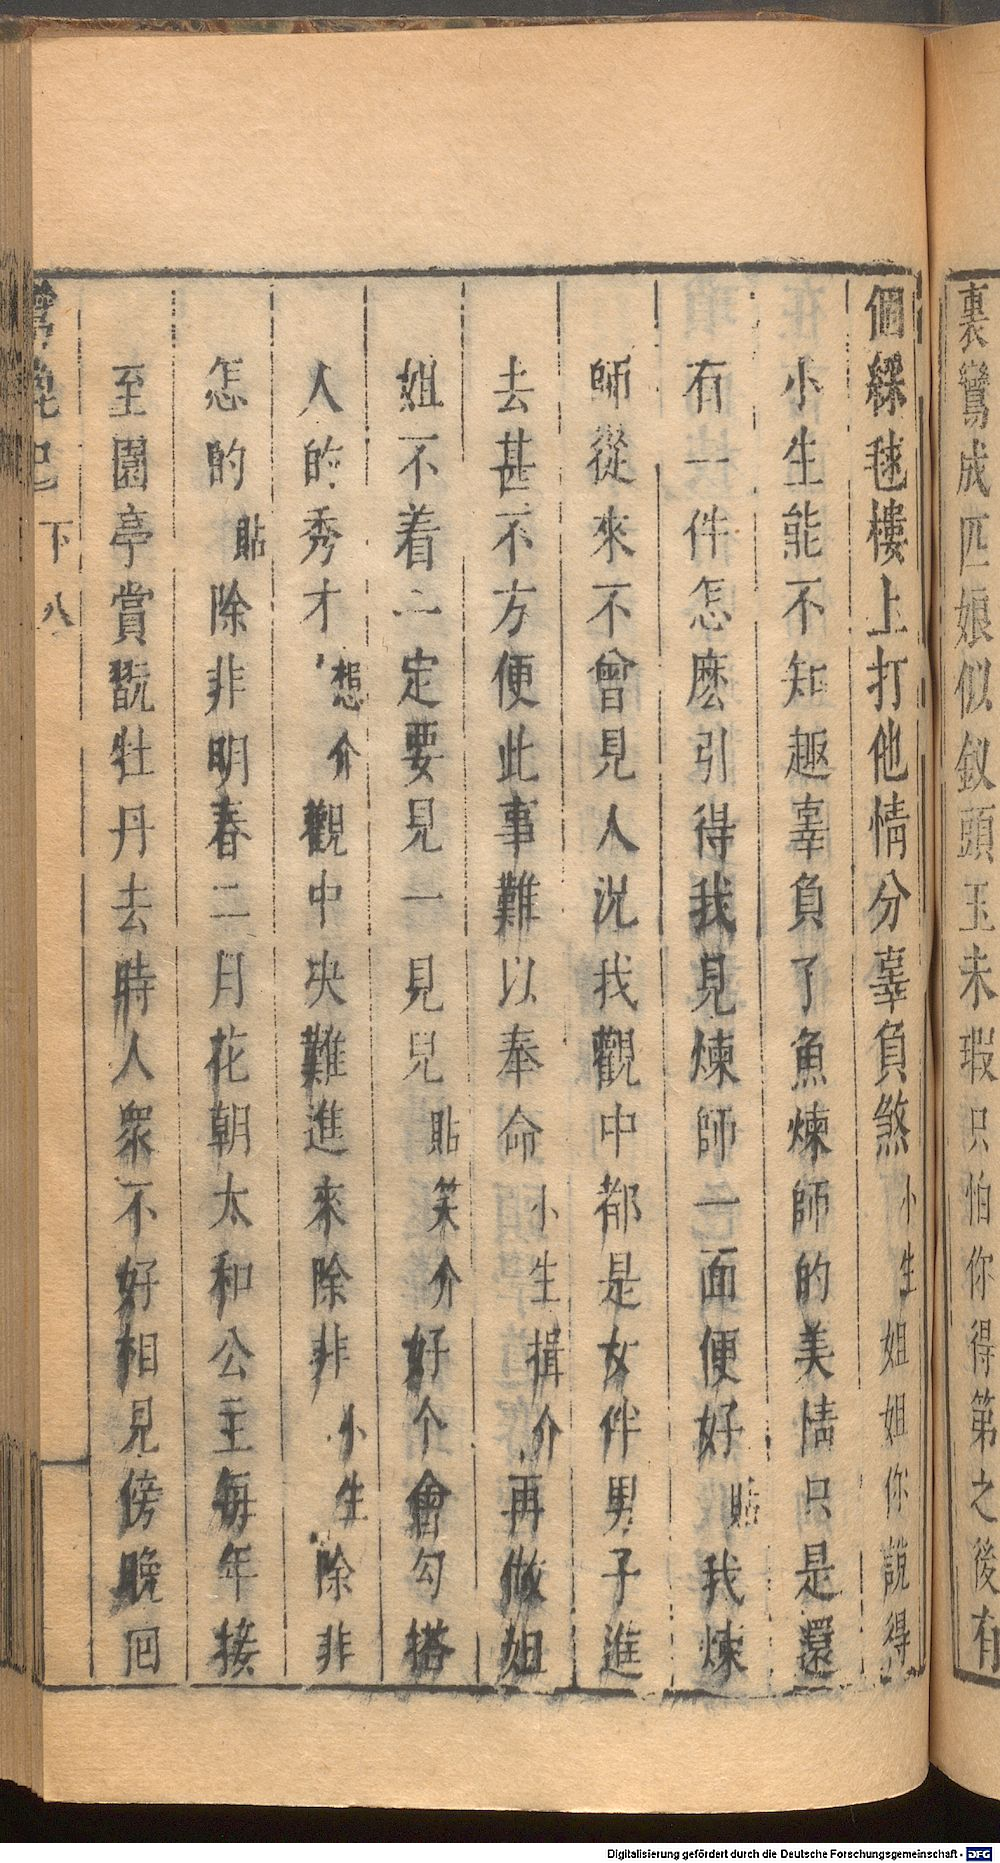 裏鸞成匹娘似釵頭玉未瑕只怕你得第之後有
個綵毬樓上打他情分辜負煞小生姐姐你說得
小生能不知趣辜負了魚煉師的美情只是還
有一件怎麽引得我見煉師一面便好貼我煉
師從來不曾見人況我觀中都是女伴男子進
去甚不方便此事難以奉命小生揖介再做姐
姐不着一定要見一見兒貼笑介好个會勾搭
人的秀才想介觀中决難進來除非小生除非
怎的貼除非明春二月花朝太和公主每年接
至園亭賞翫牡丹去時人衆不好相見傍晚囘
下 八
Digitalisierung gefördert durch die Deutsche Forschungsgemeinschaft - DFG